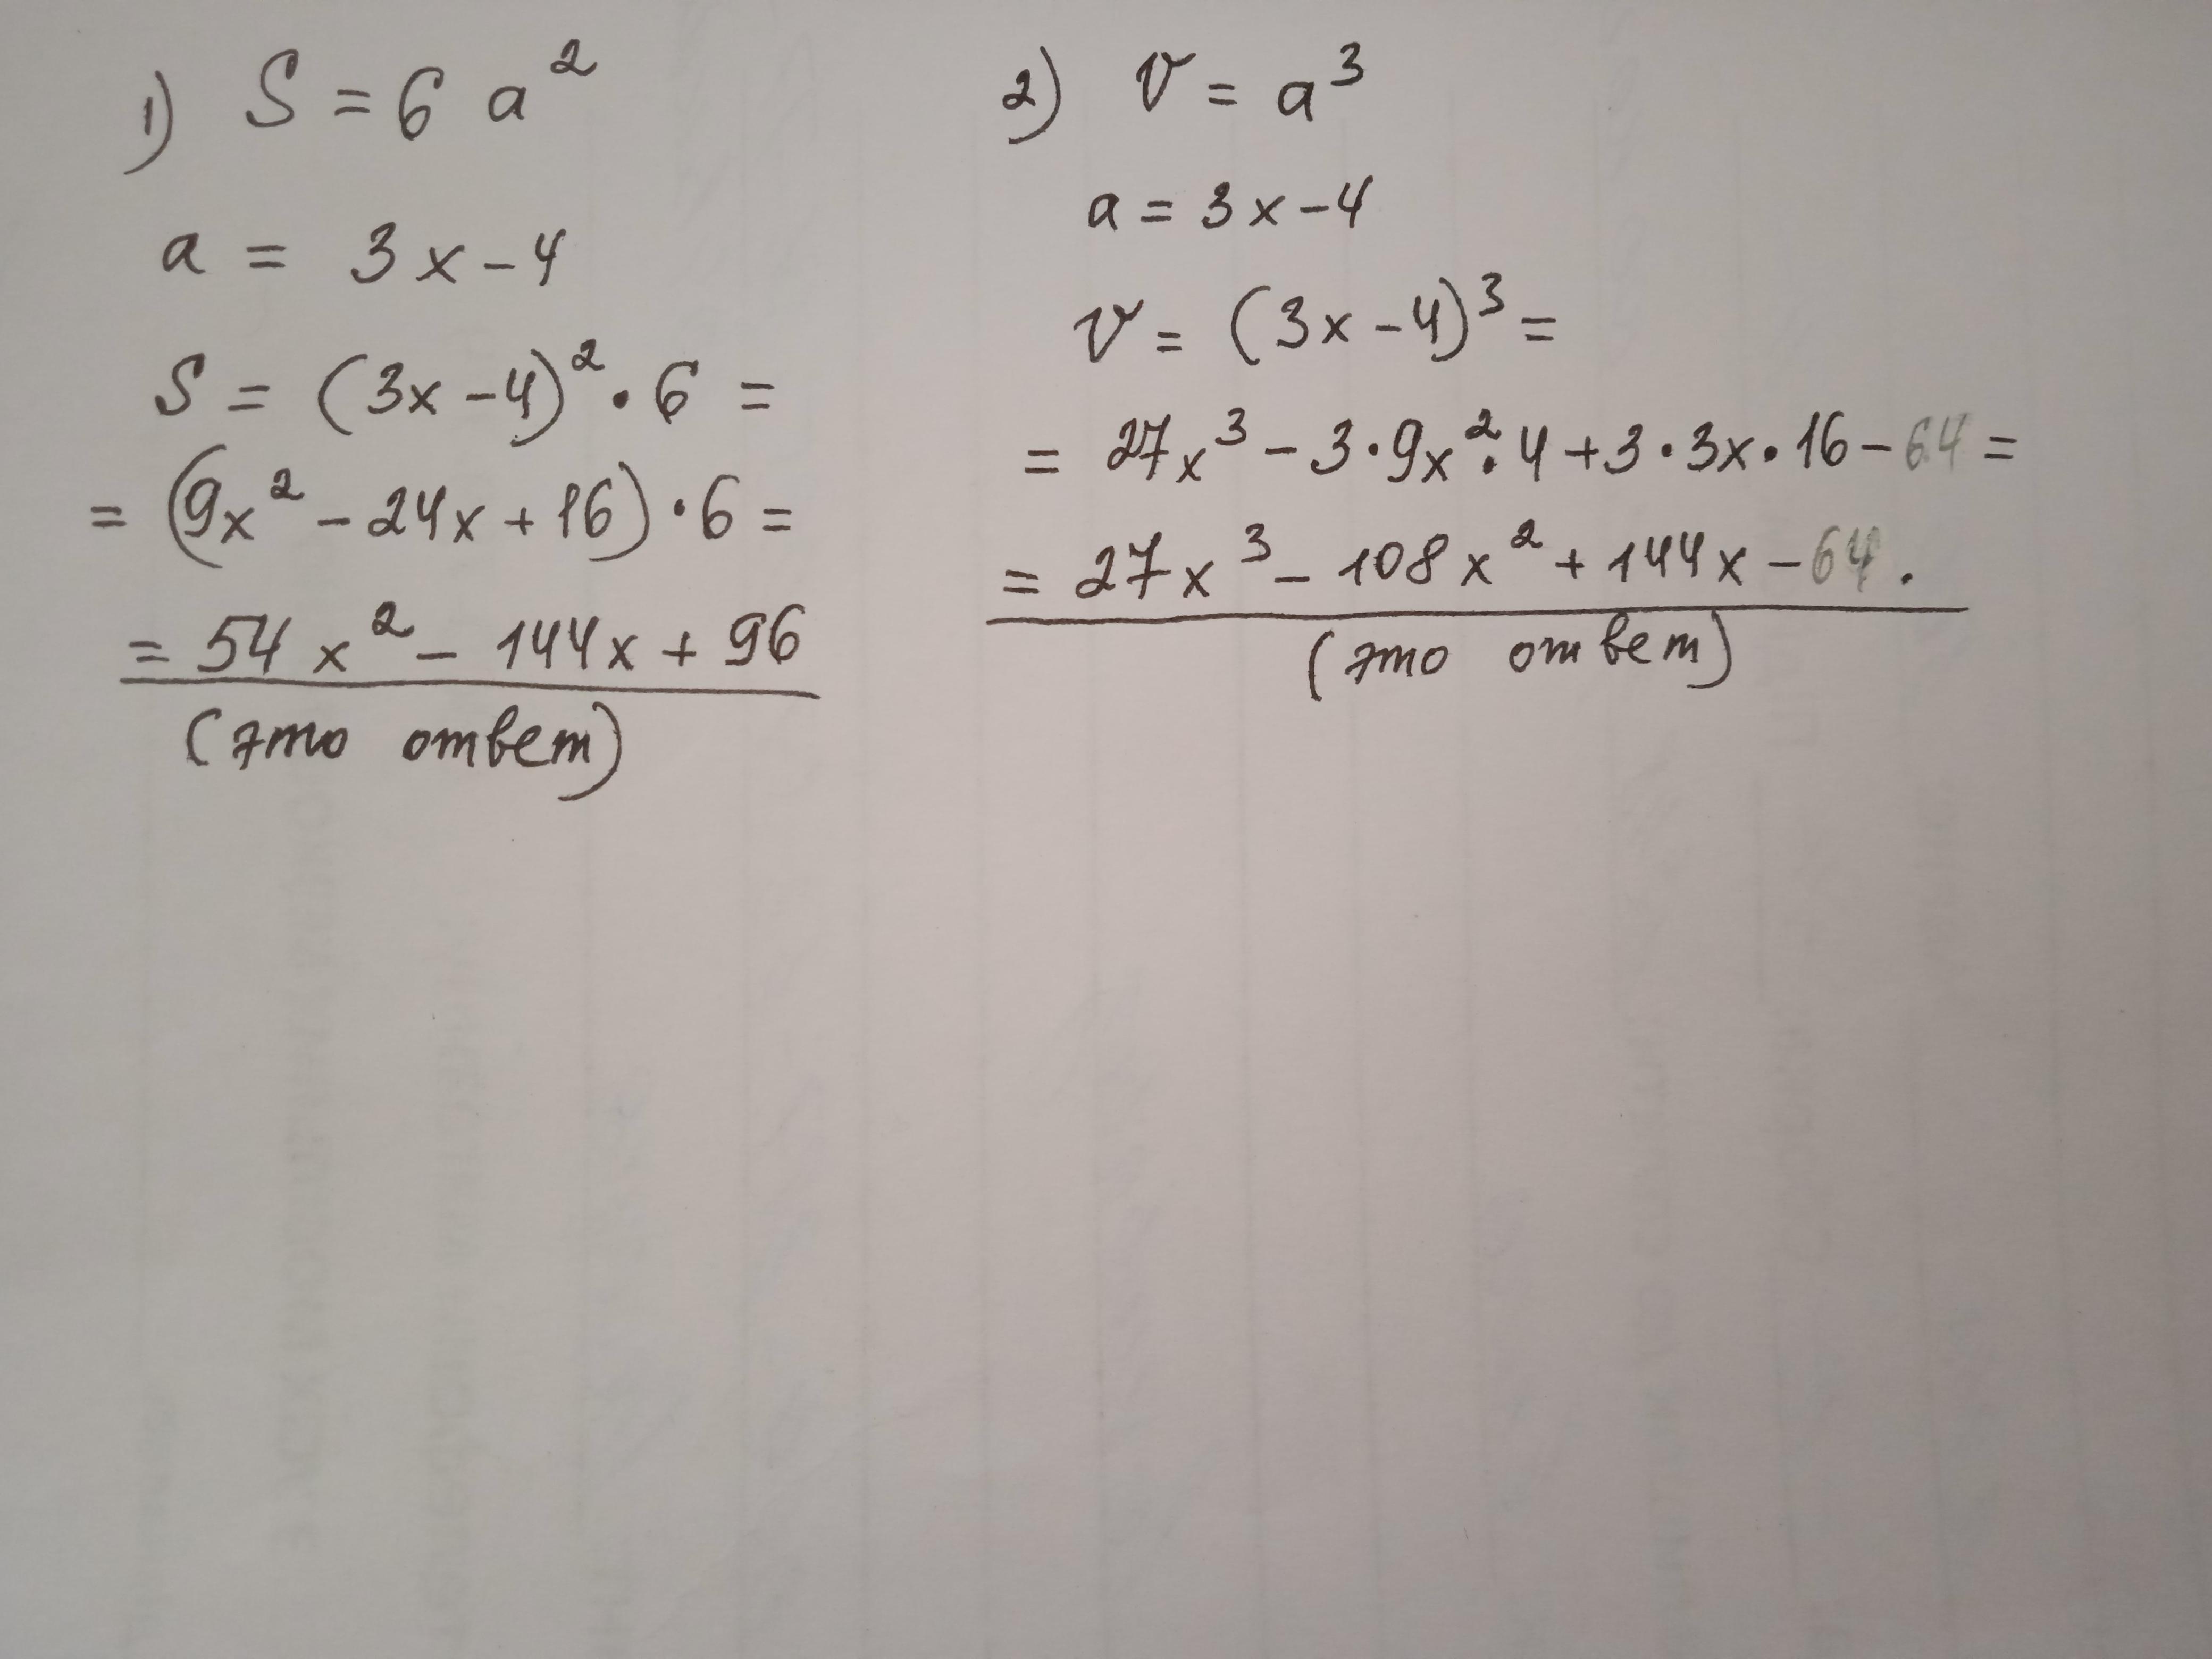 1) S = 6 a²
a = 3x – 4
S = (3x – 4)² · 6 =
= (9x² – 24x + 16) · 6 =
= 54x² – 144x + 96
(это ответ)
2) V = a³
a = 3x – 4
V = (3x – 4)³ =
= 27x³ – 3 · 9x² · 4 + 3 · 3x · 16 – 64 =
= 27x³ – 108x² + 144x – 64.
(это ответ)